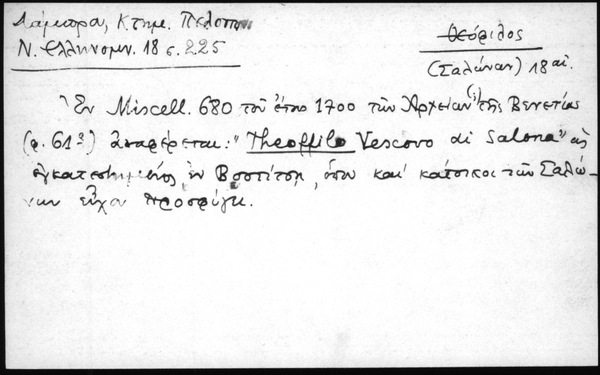 Λάμπρου, Κτημ. Πελοπον
Ν. Ελληνομν. 18 σ. 225
Θεόφιλος
(Σαλώνων) 18 αἰ.
Ἐν Miscell. 680 τοῦ ἔτους 1700 τῶν Ἀρχείων (;) τῆς Βενετίας
(φ. 61α) ἀναφέρεται: "Theoffilo Vescovo di Salona" ὡς
ἐγκατεστημένος ἐν Βοστίτσῃ, ὅπου καὶ κάτοικοι τῶν Σαλώ-
νων εἶχον προσφύγει.